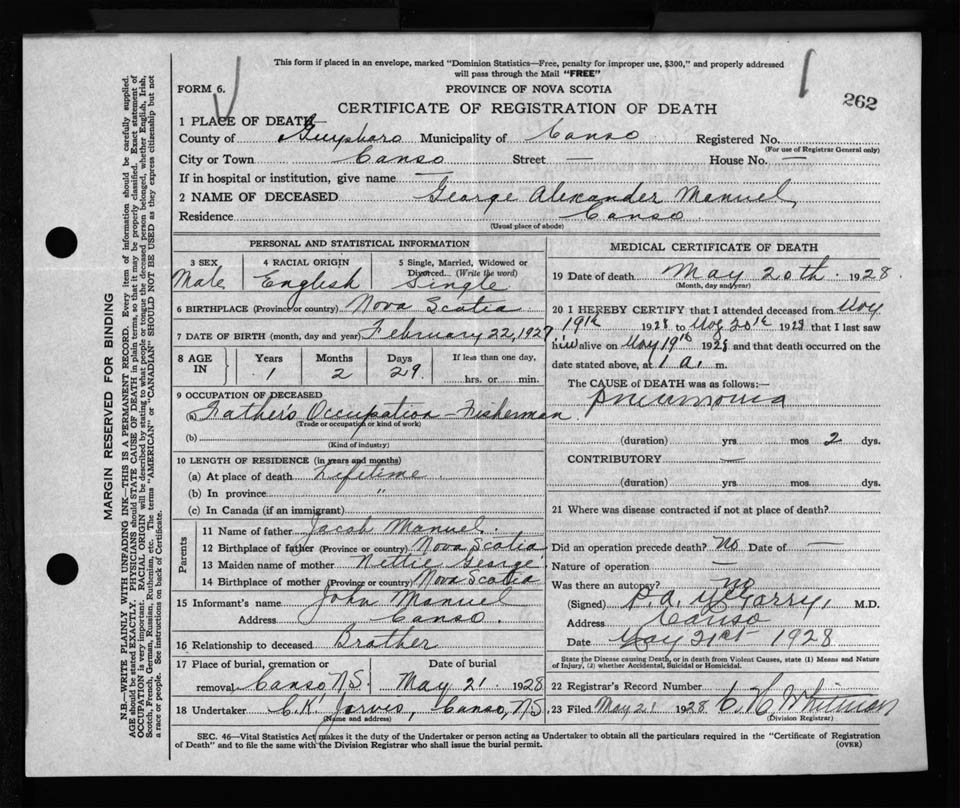 This form if placed in an envelope, marked "Dominion Statistics—Free, penalty for improper use, $300," and properly addressed
will pass through the Mail "FREE"
FORM 6.
PROVINCE OF NOVA SCOTIA
CERTIFICATE OF REGISTRATION OF DEATH
262
1 PLACE OF DEATH
County of Guysboro Municipality of Canso Registered No.
(For use of Registrar General only)
City or Town Canso Street — House No. —
If in hospital or institution, give name —
2 NAME OF DECEASED George Alexander Manuel
Residence Canso
(Usual place of abode)
PERSONAL AND STATISTICAL INFORMATION
3 SEX 4 RACIAL ORIGIN 5 Single, Married, Widowed or
Divorced. (Write the word)
Male English Single
6 BIRTHPLACE (Province or country) Nova Scotia
7 DATE OF BIRTH (month, day and year) February 22, 1927
8 AGE IN Years Months Days If less than one day,
1 2 29 hrs. or min.
9 OCCUPATION OF DECEASED
(a) Father's Occupation – Fisherman
(Trade or occupation or kind of work)
(b)
(Kind of industry)
10 LENGTH OF RESIDENCE (in years and months)
(a) At place of death Lifetime
(b) In province "
(c) In Canada (if an immigrant)
Parents
11 Name of father Jacob Manuel.
12 Birthplace of father (Province or country) Nova Scotia
13 Maiden name of mother Nettie George
14 Birthplace of mother (Province or country) Nova Scotia
15 Informant's name John Manuel
Address Canso.
16 Relationship to deceased Brother
17 Place of burial, cremation or Date of burial
removal Canso N.S. May 21 1928
18 Undertaker C.K. Jarvis, Canso, N.S.
(Name and address)
MEDICAL CERTIFICATE OF DEATH
19 Date of death May 20th. 1928
(Month, day and year)
20 I HEREBY CERTIFY that I attended deceased from May
19th 1928 to May 20th 1928 that I last saw
him alive on May 19th 1928 and that death occurred on
date stated above, at 1 a. m.
The CAUSE of DEATH was as follows:—
Pneumonia
(duration) yrs. mos 2 dys.
CONTRIBUTORY —
(duration) yrs. mos. dys.
21 Where was disease contracted if not at place of death?
Did an operation precede death? no Date of —
Nature of operation —
Was there an autopsy? no
(Signed) P.A. McGarry, M.D.
Address Canso
Date May 21st 1928
State the Disease causing Death, or in death from Violent Causes, state (1) Means and Nature
of Injury, (2) whether Accidental, Suicidal or Homicidal.
22 Registrar's Record Number
23 Filed May 21 1928 C. H. Whitman
(Division Registrar)
SEC. 46—Vital Statistics Act makes it the duty of the Undertaker or person acting as Undertaker to obtain all the particulars required in the "Certificate of Registration
of Death" and to file the same with the Division Registrar who shall issue the burial permit. (OVER)
MARGIN RESERVED FOR BINDING
N.B.—WRITE PLAINLY WITH UNFADING INK—THIS IS A PERMANENT RECORD. Every item of information should be carefully supplied.
AGE should be stated EXACTLY. PHYSICIANS should STATE CAUSE OF DEATH in plain terms, so that it may be properly classified. Exact statement of
OCCUPATION is very important. RACIAL ORIGIN will be described by stating to what people or tongue the deceased person belonged, whether English, Irish,
Scotch, French, German, Russian, Ruthenian, etc. The terms "AMERICAN" or "CANADIAN" SHOULD NOT BE USED as they express citizenship but not
a race or people. See instructions on back of Certificate.